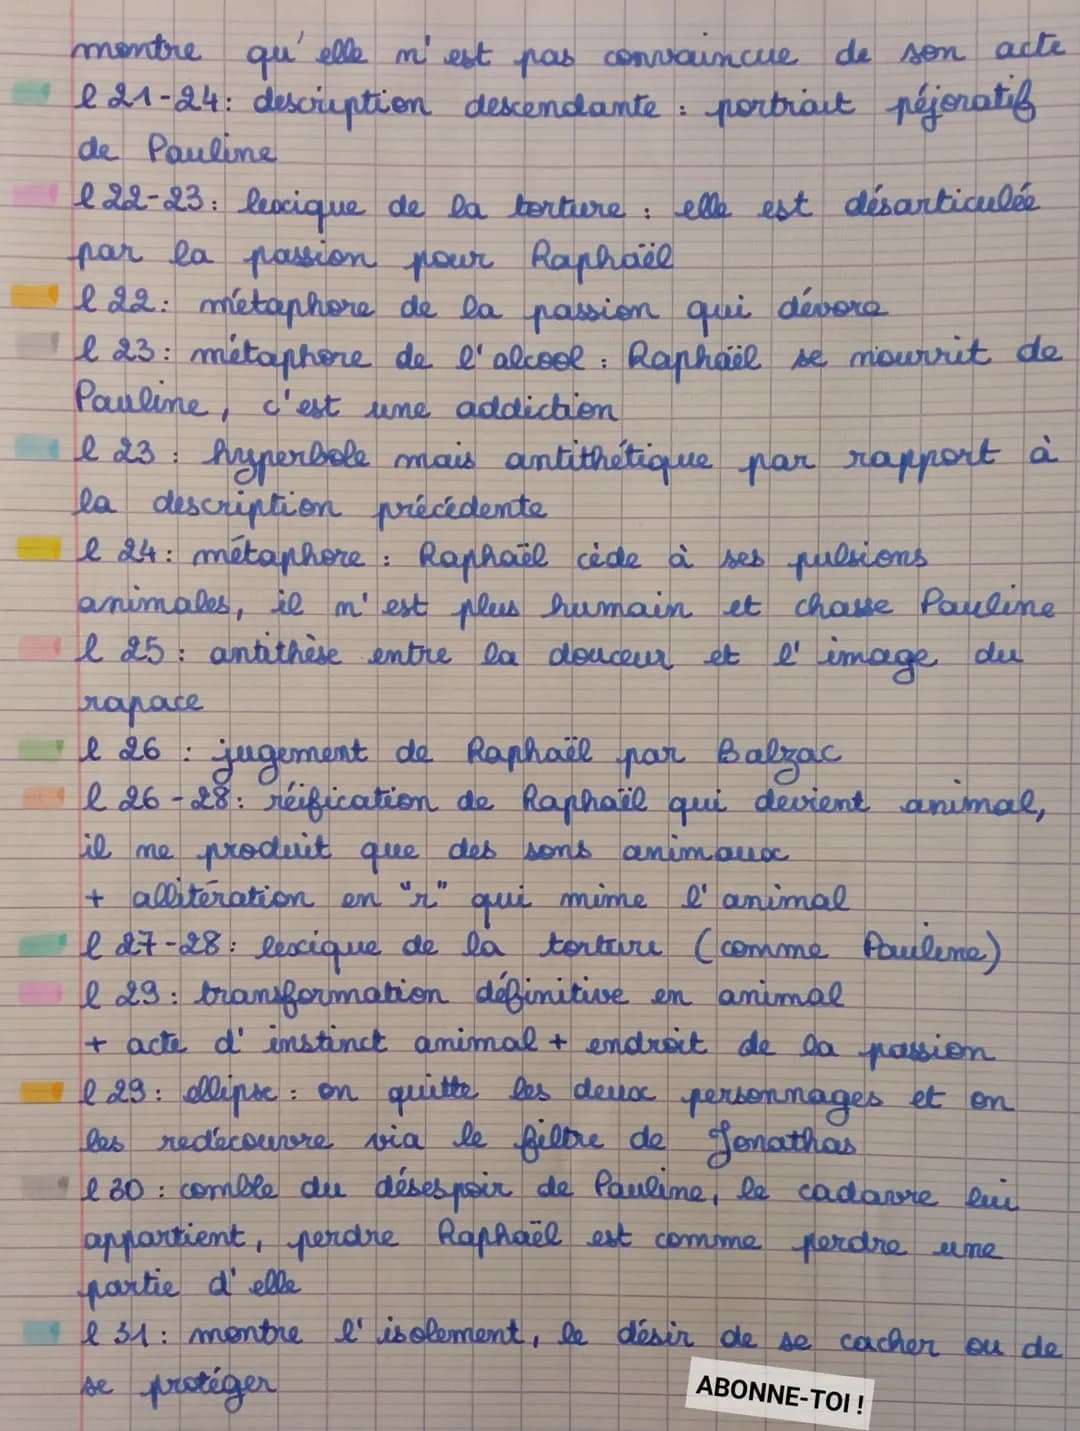 montre qu'elle n'est pas convaincue de son acte
l 21-24: description descendante : portrait péjoratif
de Pauline
l 22-23: lexique de la torture : elle est désarticulée
par la passion pour Raphaël
l 22: métaphore de la passion qui dévore
l 23: métaphore de l'alcool : Raphaël se nourrit de
Pauline, c'est une addiction
l 23 : hyperbole mais antithétique par rapport à
la description précédente
l 24: métaphore : Raphaël cède à ses pulsions
animales, il n'est plus humain et chasse Pauline
l 25 : antithèse entre la douceur et l'image du
rapace
l 26 : jugement de Raphaël par Balzac
l 26-28: réification de Raphaël qui devient animal,
il ne produit que des sons animaux
+ allitération en "r" qui mime l'animal
l 27-28: lexique de la torture (comme Pauline)
l 29: transformation définitive en animal
+ acte d'instinct animal + endroit de la passion
l 29: ellipse : on quitte les deux personnages et on
les redécouvre via le filtre de Jonathas
l 30 : comble du désespoir de Pauline, le cadavre lui
appartient, perdre Raphaël est comme perdre une
partie d'elle
l 31 : montre l'isolement, le désir de se cacher ou de
se protéger
ABONNE-TOI !